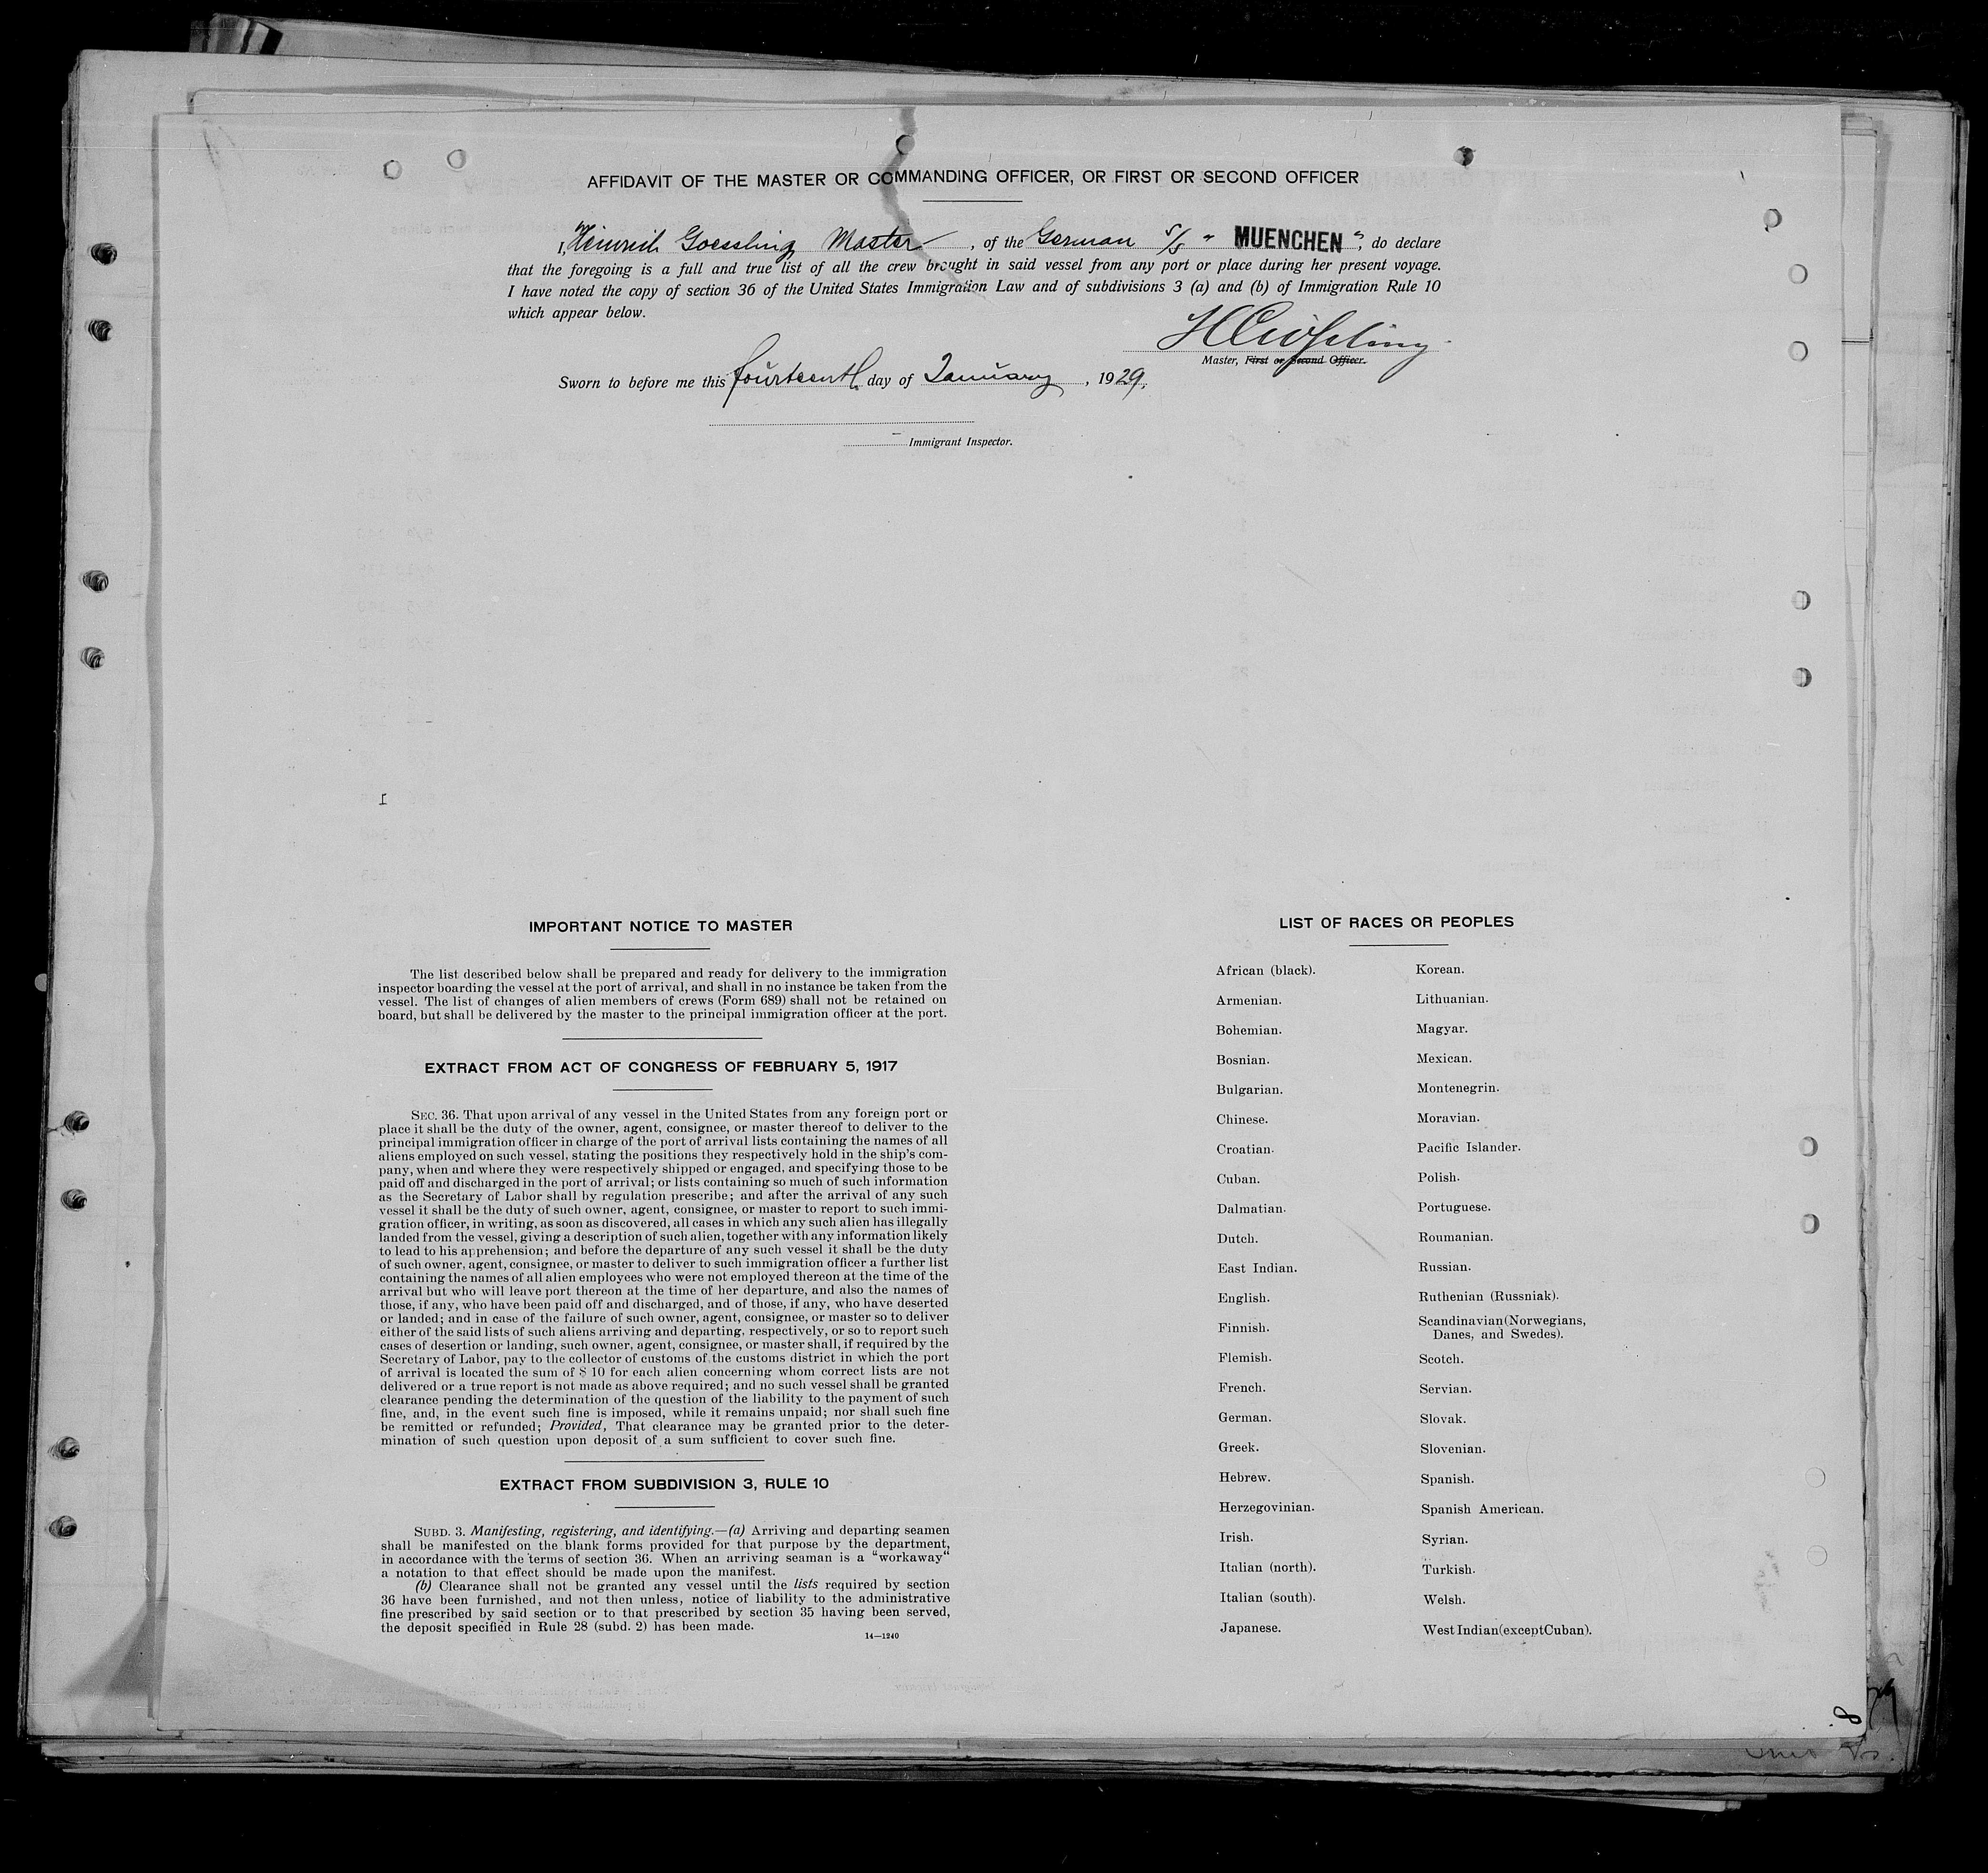 AFFIDAVIT OF THE MASTER OR COMMANDING OFFICER, OR FIRST OR SECOND OFFICER
I, Heinrich Goessling Master, of the German S/S " MUENCHEN ", do declare
that the foregoing is a full and true list of all the crew brought in said vessel from any port or place during her present voyage.
I have noted the copy of section 36 of the United States Immigration Law and of subdivisions 3 (a) and (b) of Immigration Rule 10
which appear below.
Master, First or Second Officer.
Sworn to before me this fourteenth day of January, 1929.
Immigrant Inspector.
IMPORTANT NOTICE TO MASTER
The list described below shall be prepared and ready for delivery to the immigration
inspector boarding the vessel at the port of arrival, and shall in no instance be taken from the
vessel. The list of changes of alien members of crews (Form 689) shall not be retained on
board, but shall be delivered by the master to the principal immigration officer at the port.
EXTRACT FROM ACT OF CONGRESS OF FEBRUARY 5, 1917
SEC. 36. That upon arrival of any vessel in the United States from any foreign port or
place it shall be the duty of the owner, agent, consignee, or master thereof to deliver to the
principal immigration officer in charge of the port of arrival lists containing the names of all
aliens employed on such vessel, stating the positions they respectively hold in the ship's com-
pany, when and where they were respectively shipped or engaged, and specifying those to be
paid off and discharged in the port of arrival; or lists containing so much of such information
as the Secretary of Labor shall by regulation prescribe; and after the arrival of any such
vessel it shall be the duty of such owner, agent, consignee, or master to report to such immi-
gration officer, in writing, as soon as discovered, all cases in which any such alien has illegally
landed from the vessel, giving a description of such alien, together with any information likely
to lead to his apprehension; and before the departure of any such vessel it shall be the duty
of such owner, agent, consignee, or master to deliver to such immigration officer a further list
containing the names of all alien employees who were not employed thereon at the time of the
arrival but who will leave port thereon at the time of her departure, and also the names of
those, if any, who have been paid off and discharged, and of those, if any, who have deserted
or landed; and in case of the failure of such owner, agent, consignee, or master so to deliver
either of the said lists of such aliens arriving and departing, respectively, or so to report such
cases of desertion or landing, such owner, agent, consignee, or master shall, if required by the
Secretary of Labor, pay to the collector of customs of the customs district in which the port
of arrival is located the sum of $ 10 for each alien concerning whom correct lists are not
delivered or a true report is not made as above required; and no such vessel shall be granted
clearance pending the determination of the question of the liability to the payment of such
fine, and, in the event such fine is imposed, while it remains unpaid; nor shall such fine
be remitted or refunded; Provided, That clearance may be granted prior to the deter-
mination of such question upon deposit of a sum sufficient to cover such fine.
EXTRACT FROM SUBDIVISION 3, RULE 10
SUBD. 3. Manifesting, registering, and identifying.—(a) Arriving and departing seamen
shall be manifested on the blank forms provided for that purpose by the department,
in accordance with the terms of section 36. When an arriving seaman is a "workaway"
a notation to that effect should be made upon the manifest.
(b) Clearance shall not be granted any vessel until the lists required by section
36 have been furnished, and not then unless, notice of liability to the administrative
fine prescribed by said section or to that prescribed by section 35 having been served,
the deposit specified in Rule 28 (subd. 2) has been made.
14—1240
LIST OF RACES OR PEOPLES
African (black).
Armenian.
Bohemian.
Bosnian.
Bulgarian.
Chinese.
Croatian.
Cuban.
Dalmatian.
Dutch.
East Indian.
English.
Finnish.
Flemish.
French.
German.
Greek.
Hebrew.
Herzegovinian.
Irish.
Italian (north).
Italian (south).
Japanese.
Korean.
Lithuanian.
Magyar.
Mexican.
Montenegrin.
Moravian.
Pacific Islander.
Polish.
Portuguese.
Roumanian.
Russian.
Ruthenian (Russniak).
Scandinavian(Norwegians,
Danes, and Swedes).
Scotch.
Servian.
Slovak.
Slovenian.
Spanish.
Spanish American.
Syrian.
Turkish.
Welsh.
West Indian(exceptCuban).
8